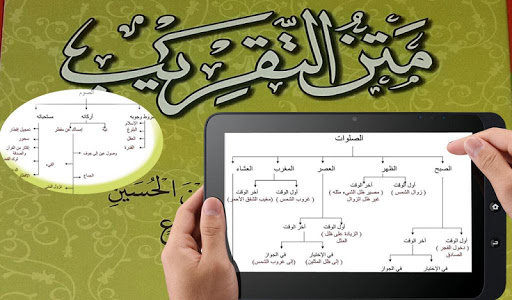 متن التقريب
الصوم
شروط وجوبه
أركانه
مستحباته
الإسلام
البلوغ
العقل
القدرة
إمساك عن مفطر
تعجيل إفطار
سحور
وصول عين إلى جوف
القيء
الجماع
ن الحسين
الصلوات
الصبح
الظهر
العصر
المغرب
العشاء
أول الوقت
(دخول الفجر الصادق)
آخر الوقت
في الإختيار
في الجواز
أول الوقت
( زوال الشمس )
آخر الوقت
( مصير ظل الشيء مثله غير ظل الزوال
أول الوقت
(الزيادة على ظل المثل
آخر الوقت
في الإختيار
(إلى ظل المثلين)
في الجواز
(إلى غروب الشمس)
أول الوقت
( غروب الشمس)
آخر الوقت
(مغيب الشفق الأحمر)